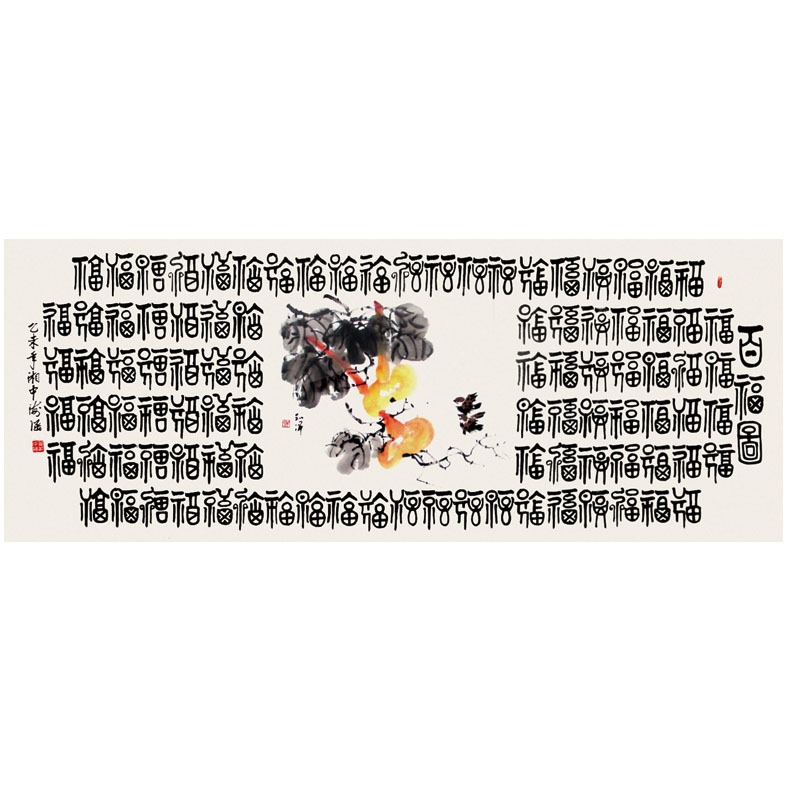 百福圖
福福福福福福福福福福福福福福福福福福福福
福福福福福福福 福福福福福福福
福福福福福福福 福福福福福福福
福福福福福福福 福福福福福福福
福福福福福福福 福福福福福福福
福福福福福福福福福福福福福福福福福福福福
乙未年湘中